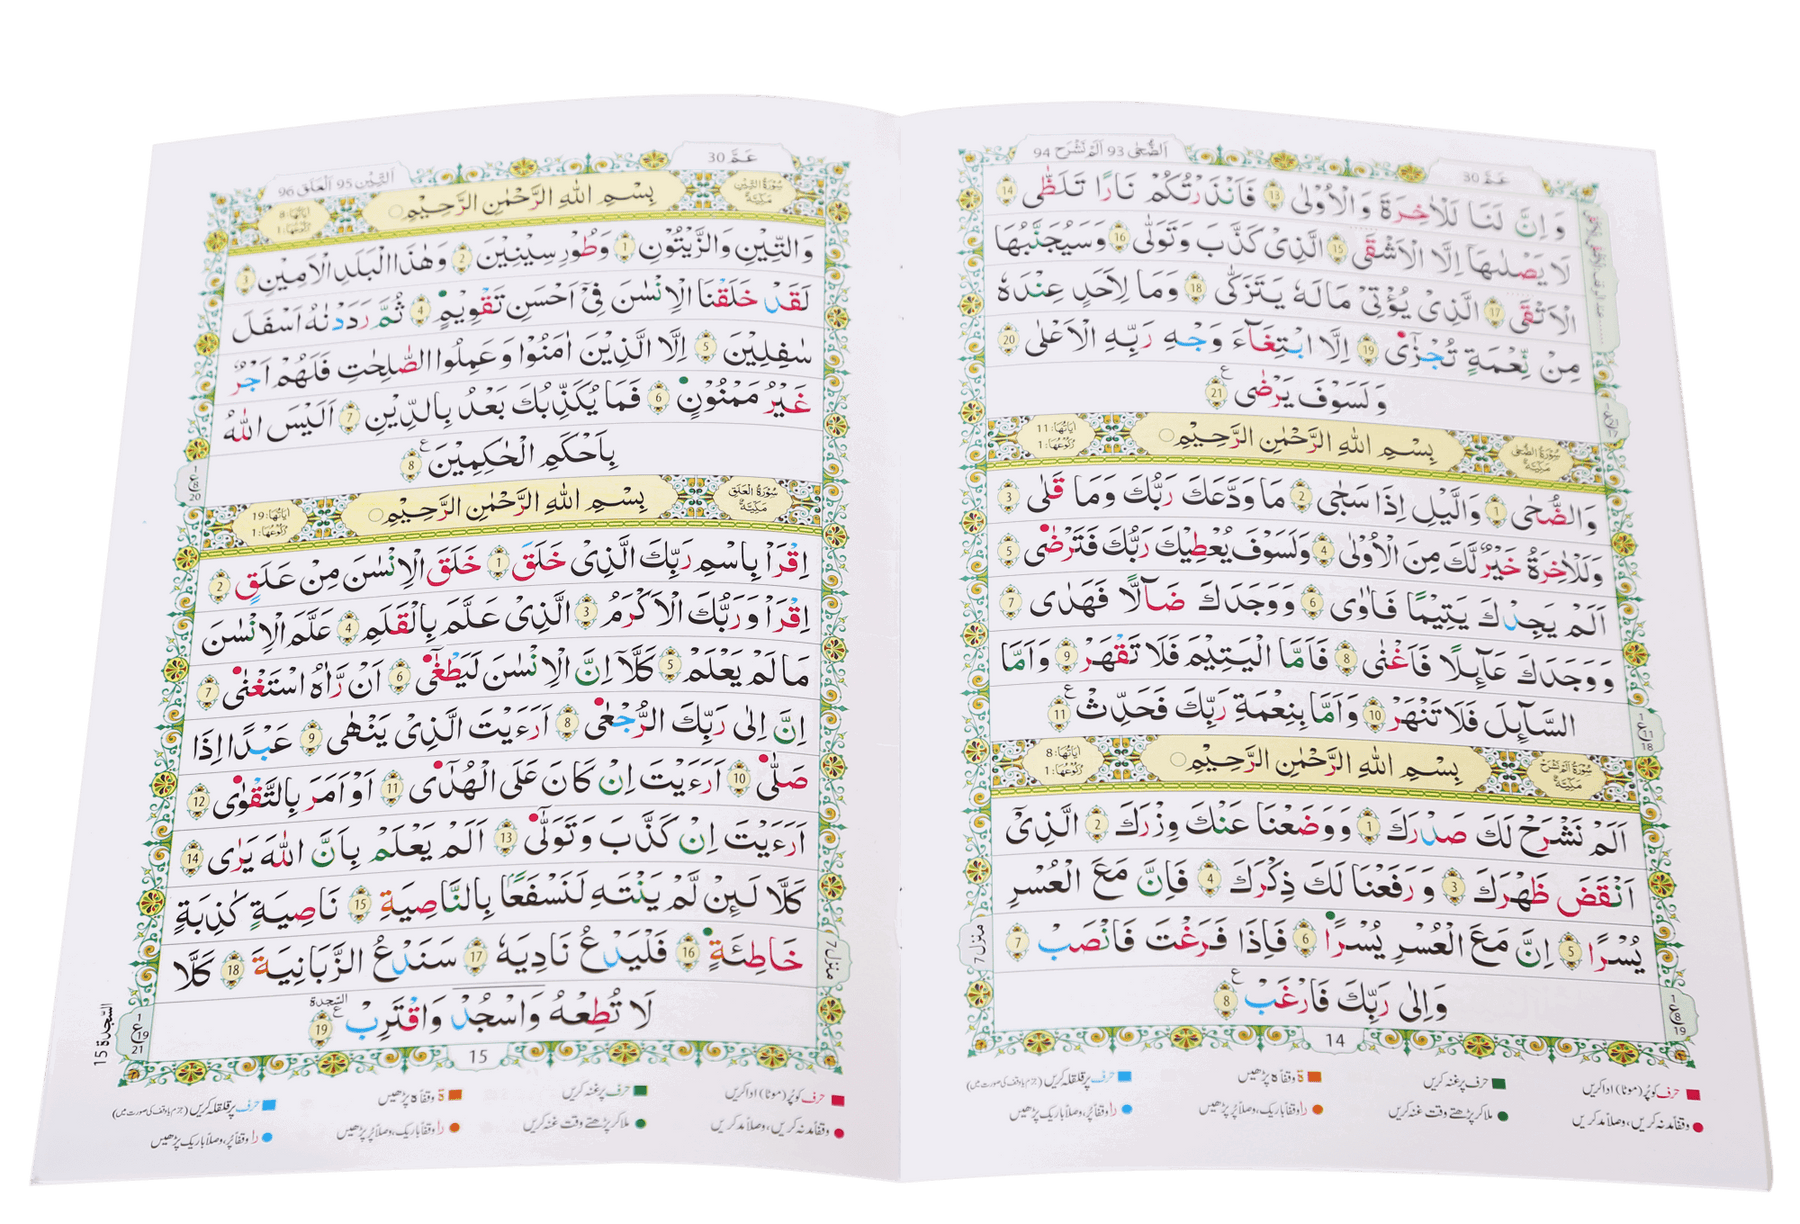 عَمَّ 30
اَلضُّحٰى 93 اَلَمْ نَشْرَحْ 94
وَ اِنَّ لَنَا لَلْاٰخِرَةَ وَالْاُوْلٰى 13 فَاَنْذَرْتُكُمْ نَارًا تَلَظّٰى 14
لَا يَصْلٰىهَاۤ اِلَّا الْاَشْقَى 15 الَّذِىْ كَذَّبَ وَتَوَلّٰى 16 وَسَيُجَنَّبُهَا
الْاَتْقَى 17 الَّذِىْ يُؤْتِىْ مَالَهٗ يَتَزَكّٰى 18 وَمَا لِاَحَدٍ عِنْدَهٗ
مِنْ نِّعْمَةٍ تُجْزٰۤى 19 اِلَّا ابْتِغَآءَ وَجْهِ رَبِّهِ الْاَعْلٰى 20
وَلَسَوْفَ يَرْضٰى 21
سُوْرَةُ الضُّحٰى مَكِّيَّةٌ
بِسْمِ اللّٰهِ الرَّحْمٰنِ الرَّحِيْمِ
اٰيَاتُهَا: 11 رُكُوْعُهَا: 1
وَالضُّحٰى 1 وَالَّيْلِ اِذَا سَجٰى 2 مَا وَدَّعَكَ رَبُّكَ وَمَا قَلٰى 3
وَلَلْاٰخِرَةُ خَيْرٌ لَّكَ مِنَ الْاُوْلٰى 4 وَلَسَوْفَ يُعْطِيْكَ رَبُّكَ فَتَرْضٰى 5
اَلَمْ يَجِدْكَ يَتِيْمًا فَاٰوٰى 6 وَوَجَدَكَ ضَآلًّا فَهَدٰى 7
وَوَجَدَكَ عَآئِلًا فَاَغْنٰى 8 فَاَمَّا الْيَتِيْمَ فَلَا تَقْهَرْ 9 وَاَمَّا
السَّآئِلَ فَلَا تَنْهَرْ 10 وَاَمَّا بِنِعْمَةِ رَبِّكَ فَحَدِّثْ 11
ع 11 18
سُوْرَةُ اَلَمْ نَشْرَحْ مَكِّيَّةٌ
بِسْمِ اللّٰهِ الرَّحْمٰنِ الرَّحِيْمِ
اٰيَاتُهَا: 8 رُكُوْعُهَا: 1
اَلَمْ نَشْرَحْ لَكَ صَدْرَكَ 1 وَوَضَعْنَا عَنْكَ وِزْرَكَ 2 الَّذِىْۤ
اَنْقَضَ ظَهْرَكَ 3 وَرَفَعْنَا لَكَ ذِكْرَكَ 4 فَاِنَّ مَعَ الْعُسْرِ
يُسْرًا 5 اِنَّ مَعَ الْعُسْرِ يُسْرًا 6 فَاِذَا فَرَغْتَ فَانْصَبْ 7
وَاِلٰى رَبِّكَ فَارْغَبْ 8
ع 8 19
منزل 7
14
حرف کوپُر (موٹا) ادا کریں
حرف پر غنہ کریں
ة وقفاً ہ پڑھیں
حرف پر قلقلہ کریں (جزم یا وقف کی صورت میں)
وقفاً مد نہ کریں، وصلاً مد کریں
ملا کر پڑھتے وقت غنہ کریں
را وقفاً باریک، وصلاً پُر پڑھیں
را وقفاً پُر، وصلاً باریک پڑھیں
عَمَّ 30
اَلتِّيْن 95 اَلْعَلَق 96
سُوْرَةُ التِّيْنِ مَكِّيَّةٌ
بِسْمِ اللّٰهِ الرَّحْمٰنِ الرَّحِيْمِ
اٰيَاتُهَا: 8 رُكُوْعُهَا: 1
وَالتِّيْنِ وَالزَّيْتُوْنِ 1 وَطُوْرِ سِيْنِيْنَ 2 وَهٰذَا الْبَلَدِ الْاَمِيْنِ 3
لَقَدْ خَلَقْنَا الْاِنْسٰنَ فِىْۤ اَحْسَنِ تَقْوِيْمٍ 4 ثُمَّ رَدَدْنٰهُ اَسْفَلَ
سٰفِلِيْنَ 5 اِلَّا الَّذِيْنَ اٰمَنُوْا وَعَمِلُوا الصّٰلِحٰتِ فَلَهُمْ اَجْرٌ
غَيْرُ مَمْنُوْنٍ 6 فَمَا يُكَذِّبُكَ بَعْدُ بِالدِّيْنِ 7 اَلَيْسَ اللّٰهُ
بِاَحْكَمِ الْحٰكِمِيْنَ 8
ع 8 20
سُوْرَةُ الْعَلَقِ مَكِّيَّةٌ
بِسْمِ اللّٰهِ الرَّحْمٰنِ الرَّحِيْمِ
اٰيَاتُهَا: 19 رُكُوْعُهَا: 1
اِقْرَاْ بِاسْمِ رَبِّكَ الَّذِىْ خَلَقَ 1 خَلَقَ الْاِنْسٰنَ مِنْ عَلَقٍ 2
اِقْرَاْ وَرَبُّكَ الْاَكْرَمُ 3 الَّذِىْ عَلَّمَ بِالْقَلَمِ 4 عَلَّمَ الْاِنْسٰنَ
مَا لَمْ يَعْلَمْ 5 كَلَّاۤ اِنَّ الْاِنْسٰنَ لَيَطْغٰۤى 6 اَنْ رَّاٰهُ اسْتَغْنٰى 7
اِنَّ اِلٰى رَبِّكَ الرُّجْعٰى 8 اَرَءَيْتَ الَّذِىْ يَنْهٰى 9 عَبْدًا اِذَا
صَلّٰى 10 اَرَءَيْتَ اِنْ كَانَ عَلَى الْهُدٰۤى 11 اَوْ اَمَرَ بِالتَّقْوٰى 12
اَرَءَيْتَ اِنْ كَذَّبَ وَتَوَلّٰى 13 اَلَمْ يَعْلَمْ بِاَنَّ اللّٰهَ يَرٰى 14
كَلَّا لَئِنْ لَّمْ يَنْتَهِ لَنَسْفَعًۢا بِالنَّاصِيَةِ 15 نَاصِيَةٍ كٰذِبَةٍ
خَاطِئَةٍ 16 فَلْيَدْعُ نَادِيَهٗ 17 سَنَدْعُ الزَّبَانِيَةَ 18 كَلَّا
لَا تُطِعْهُ وَاسْجُدْ وَاقْتَرِبْ السّجدة 19
ع 19 21
السّجدة 15
منزل 7
15
حرف کوپُر (موٹا) ادا کریں
حرف پر غنہ کریں
ة وقفاً ہ پڑھیں
حرف پر قلقلہ کریں (جزم یا وقف کی صورت میں)
وقفاً مد نہ کریں، وصلاً مد کریں
ملا کر پڑھتے وقت غنہ کریں
را وقفاً باریک، وصلاً پُر پڑھیں
را وقفاً پُر، وصلاً باریک پڑھیں